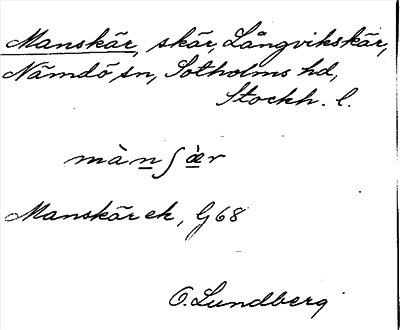 Manskär, skär, Långvikskär,
Nämdö sn, Sotholms hd,
Stockh. l.
màn̲ʃæ̲̀r
Manskär ek, G68
O. Lundberg